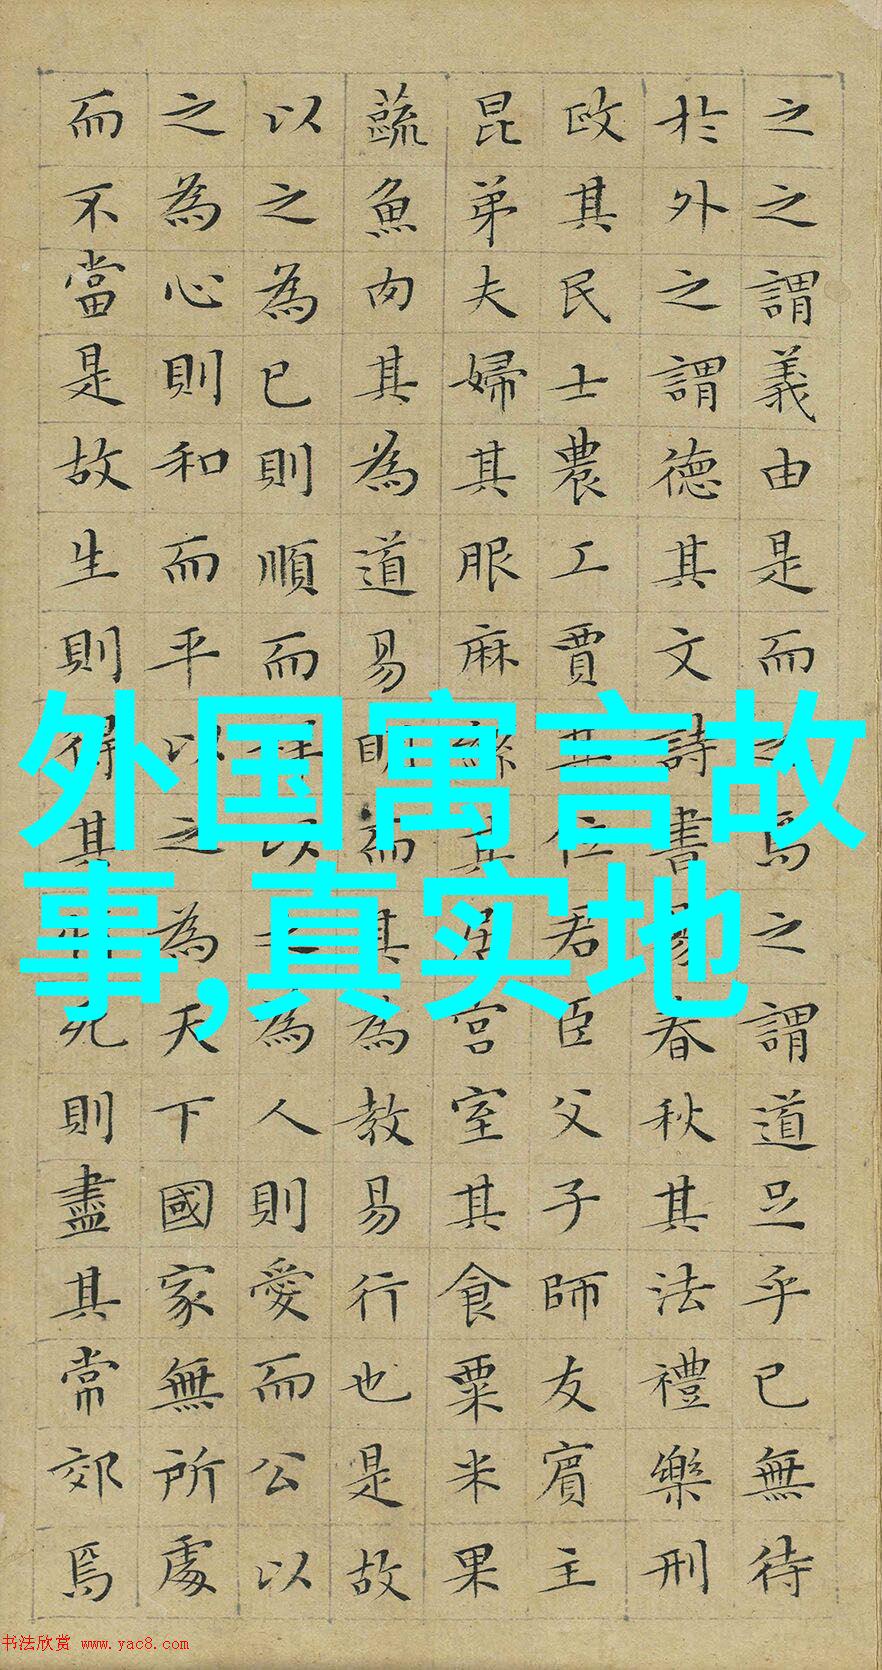 之之謂義由是而之焉之謂道足乎已無待
於外之謂德其文詩書易春秋其法禮樂刑
政其民士農工賈其位君臣父子師友賓主
昆弟夫婦其服麻絲其居宮室其食粟米果
蔬魚肉其為道易明而其為教易行也是故
以之為已則順而祥以之為人則愛而公以
之為心則和而平以之為天下國家無所處
而不當是故生則得其死則盡其常郊焉
外国寓言故
事,真实地
书法欣赏 www.yac8.com